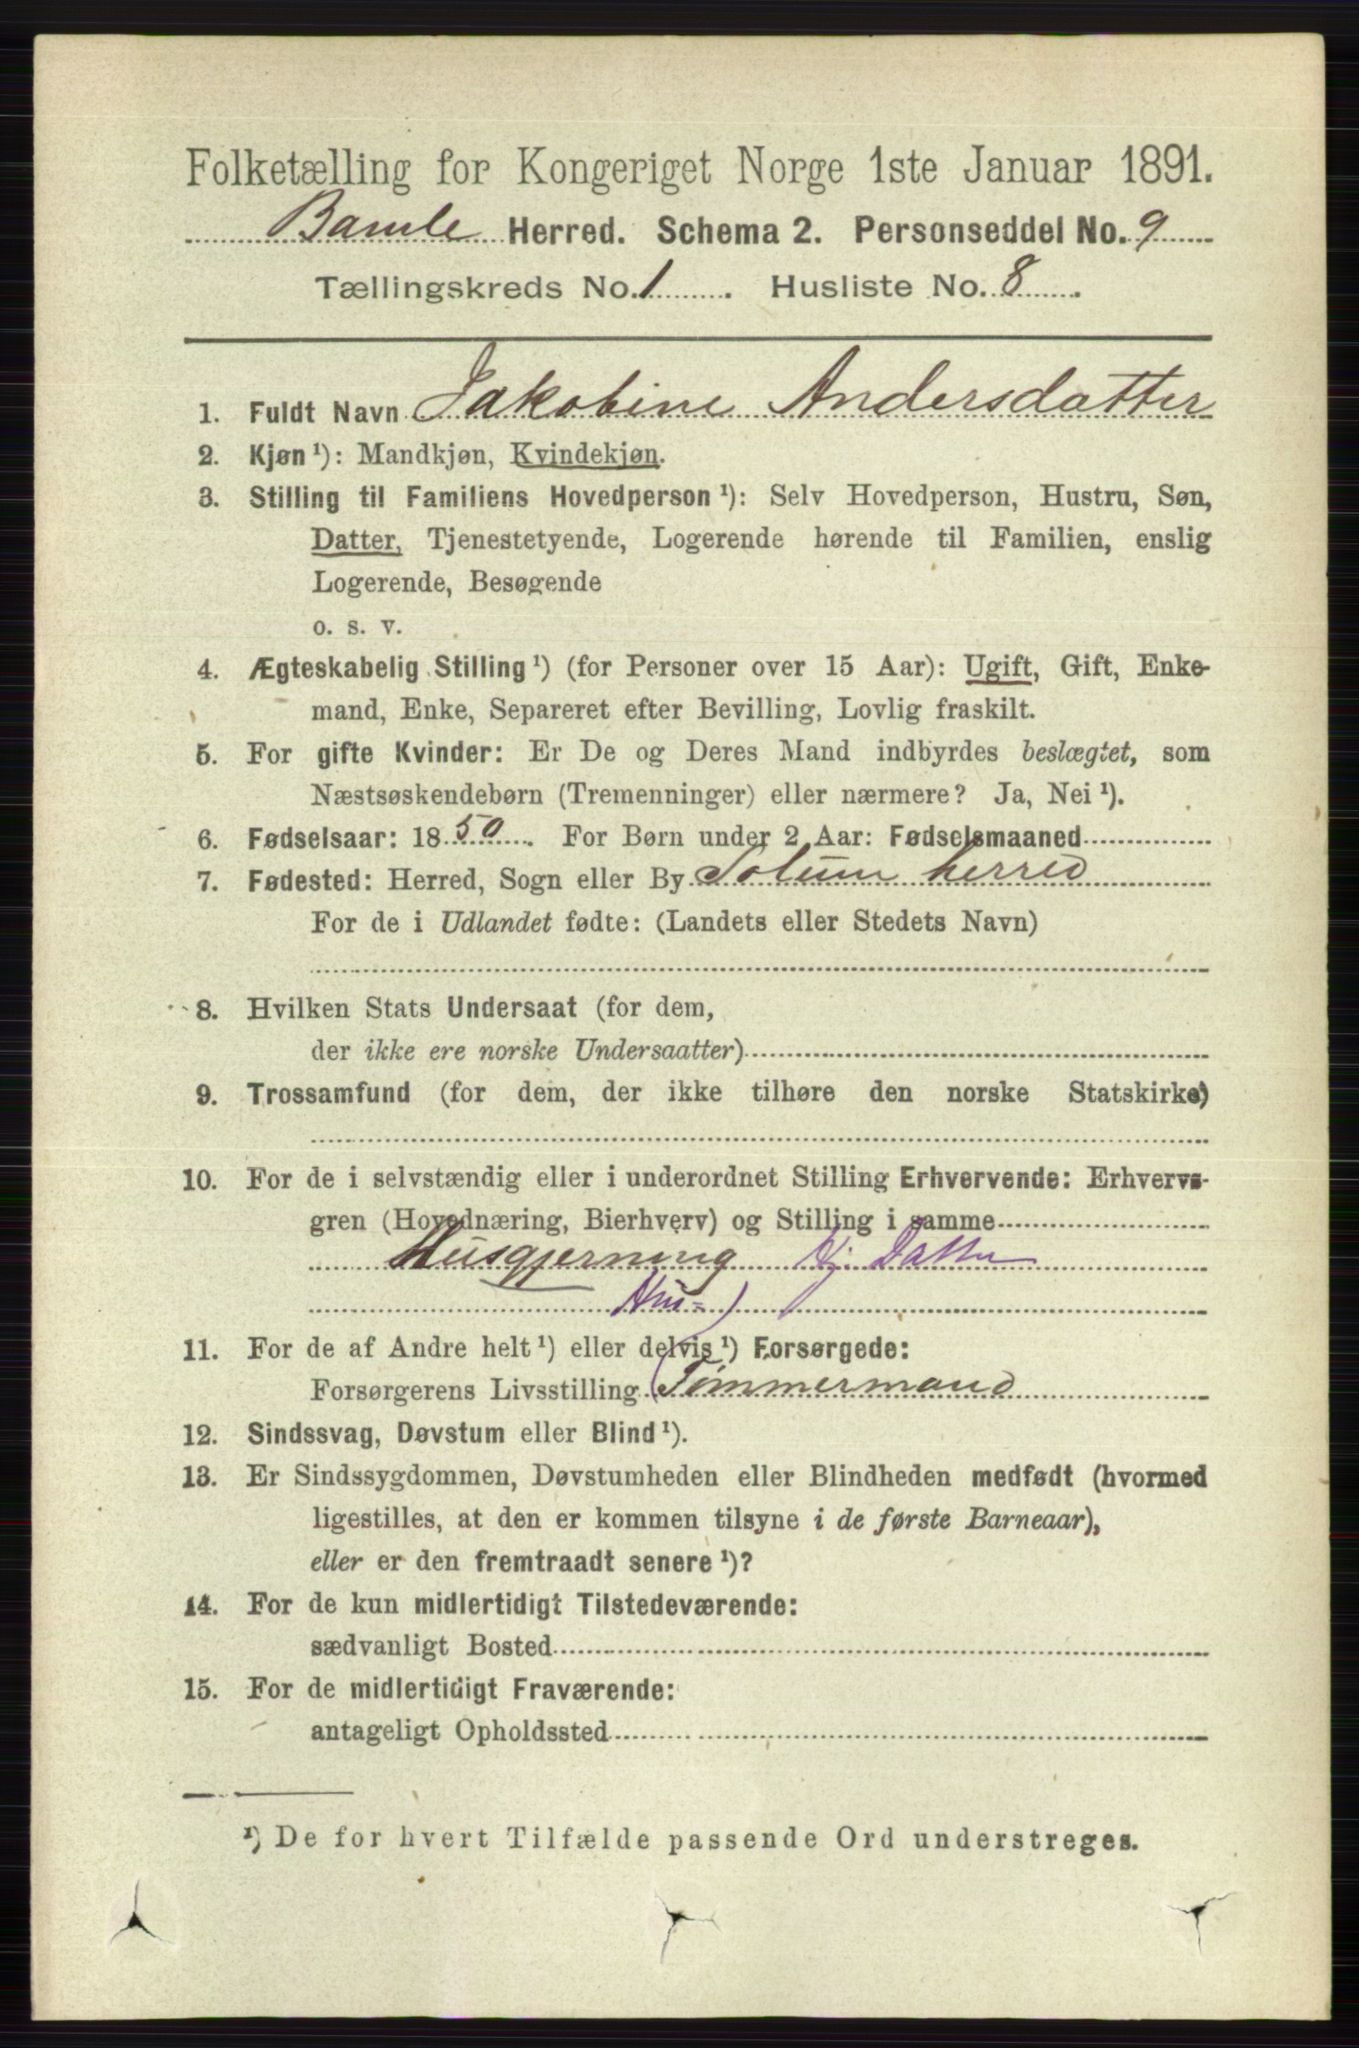 Folketælling for Kongeriget Norge 1ste Januar 1891.
Bamle Herred. Schema 2. Personseddel No. 9
Tællingskreds No. 1. Husliste No. 8.
1. Fuldt Navn Jakobine Andersdatter
2. Kjøn ¹): Mandkjøn, Kvindekjøn.
3. Stilling til Familiens Hovedperson ¹): Selv Hovedperson, Hustru, Søn,
Datter, Tjenestetyende, Logerende hørende til Familien, enslig
Logerende, Besøgende
o. s. v.
4. Ægteskabelig Stilling ¹) (for Personer over 15 Aar): Ugift, Gift, Enke-
mand, Enke, Separeret efter Bevilling, Lovlig fraskilt.
5. For gifte Kvinder: Er De og Deres Mand indbyrdes beslægtet, som
Næstsøskendebørn (Tremenninger) eller nærmere? Ja, Nei ¹).
6. Fødselsaar: 1850. For Børn under 2 Aar: Fødselsmaaned
7. Fødested: Herred, Sogn eller By Solum herred
For de i Udlandet fødte: (Landets eller Stedets Navn)
8. Hvilken Stats Undersaat (for dem,
der ikke ere norske Undersaatter)
9. Trossamfund (for dem, der ikke tilhøre den norske Statskirke)
10. For de i selvstændig eller i underordnet Stilling Erhvervende: Erhvervs-
gren (Hovednæring, Bierhverv) og Stilling i samme
Husgjerning Hj. Datter
11. For de af Andre helt ¹) eller delvis ¹) Forsørgede:
Forsørgerens Livsstilling (Tømmermand
12. Sindssvag, Døvstum eller Blind ¹).
13. Er Sindssygdommen, Døvstumheden eller Blindheden medfødt (hvormed
ligestilles, at den er kommen tilsyne i de første Barneaar),
eller er den fremtraadt senere ¹)?
14. For de kun midlertidigt Tilstedeværende:
sædvanligt Bosted
15. For de midlertidigt Fraværende:
antageligt Opholdssted
¹) De for hvert Tilfælde passende Ord understreges.